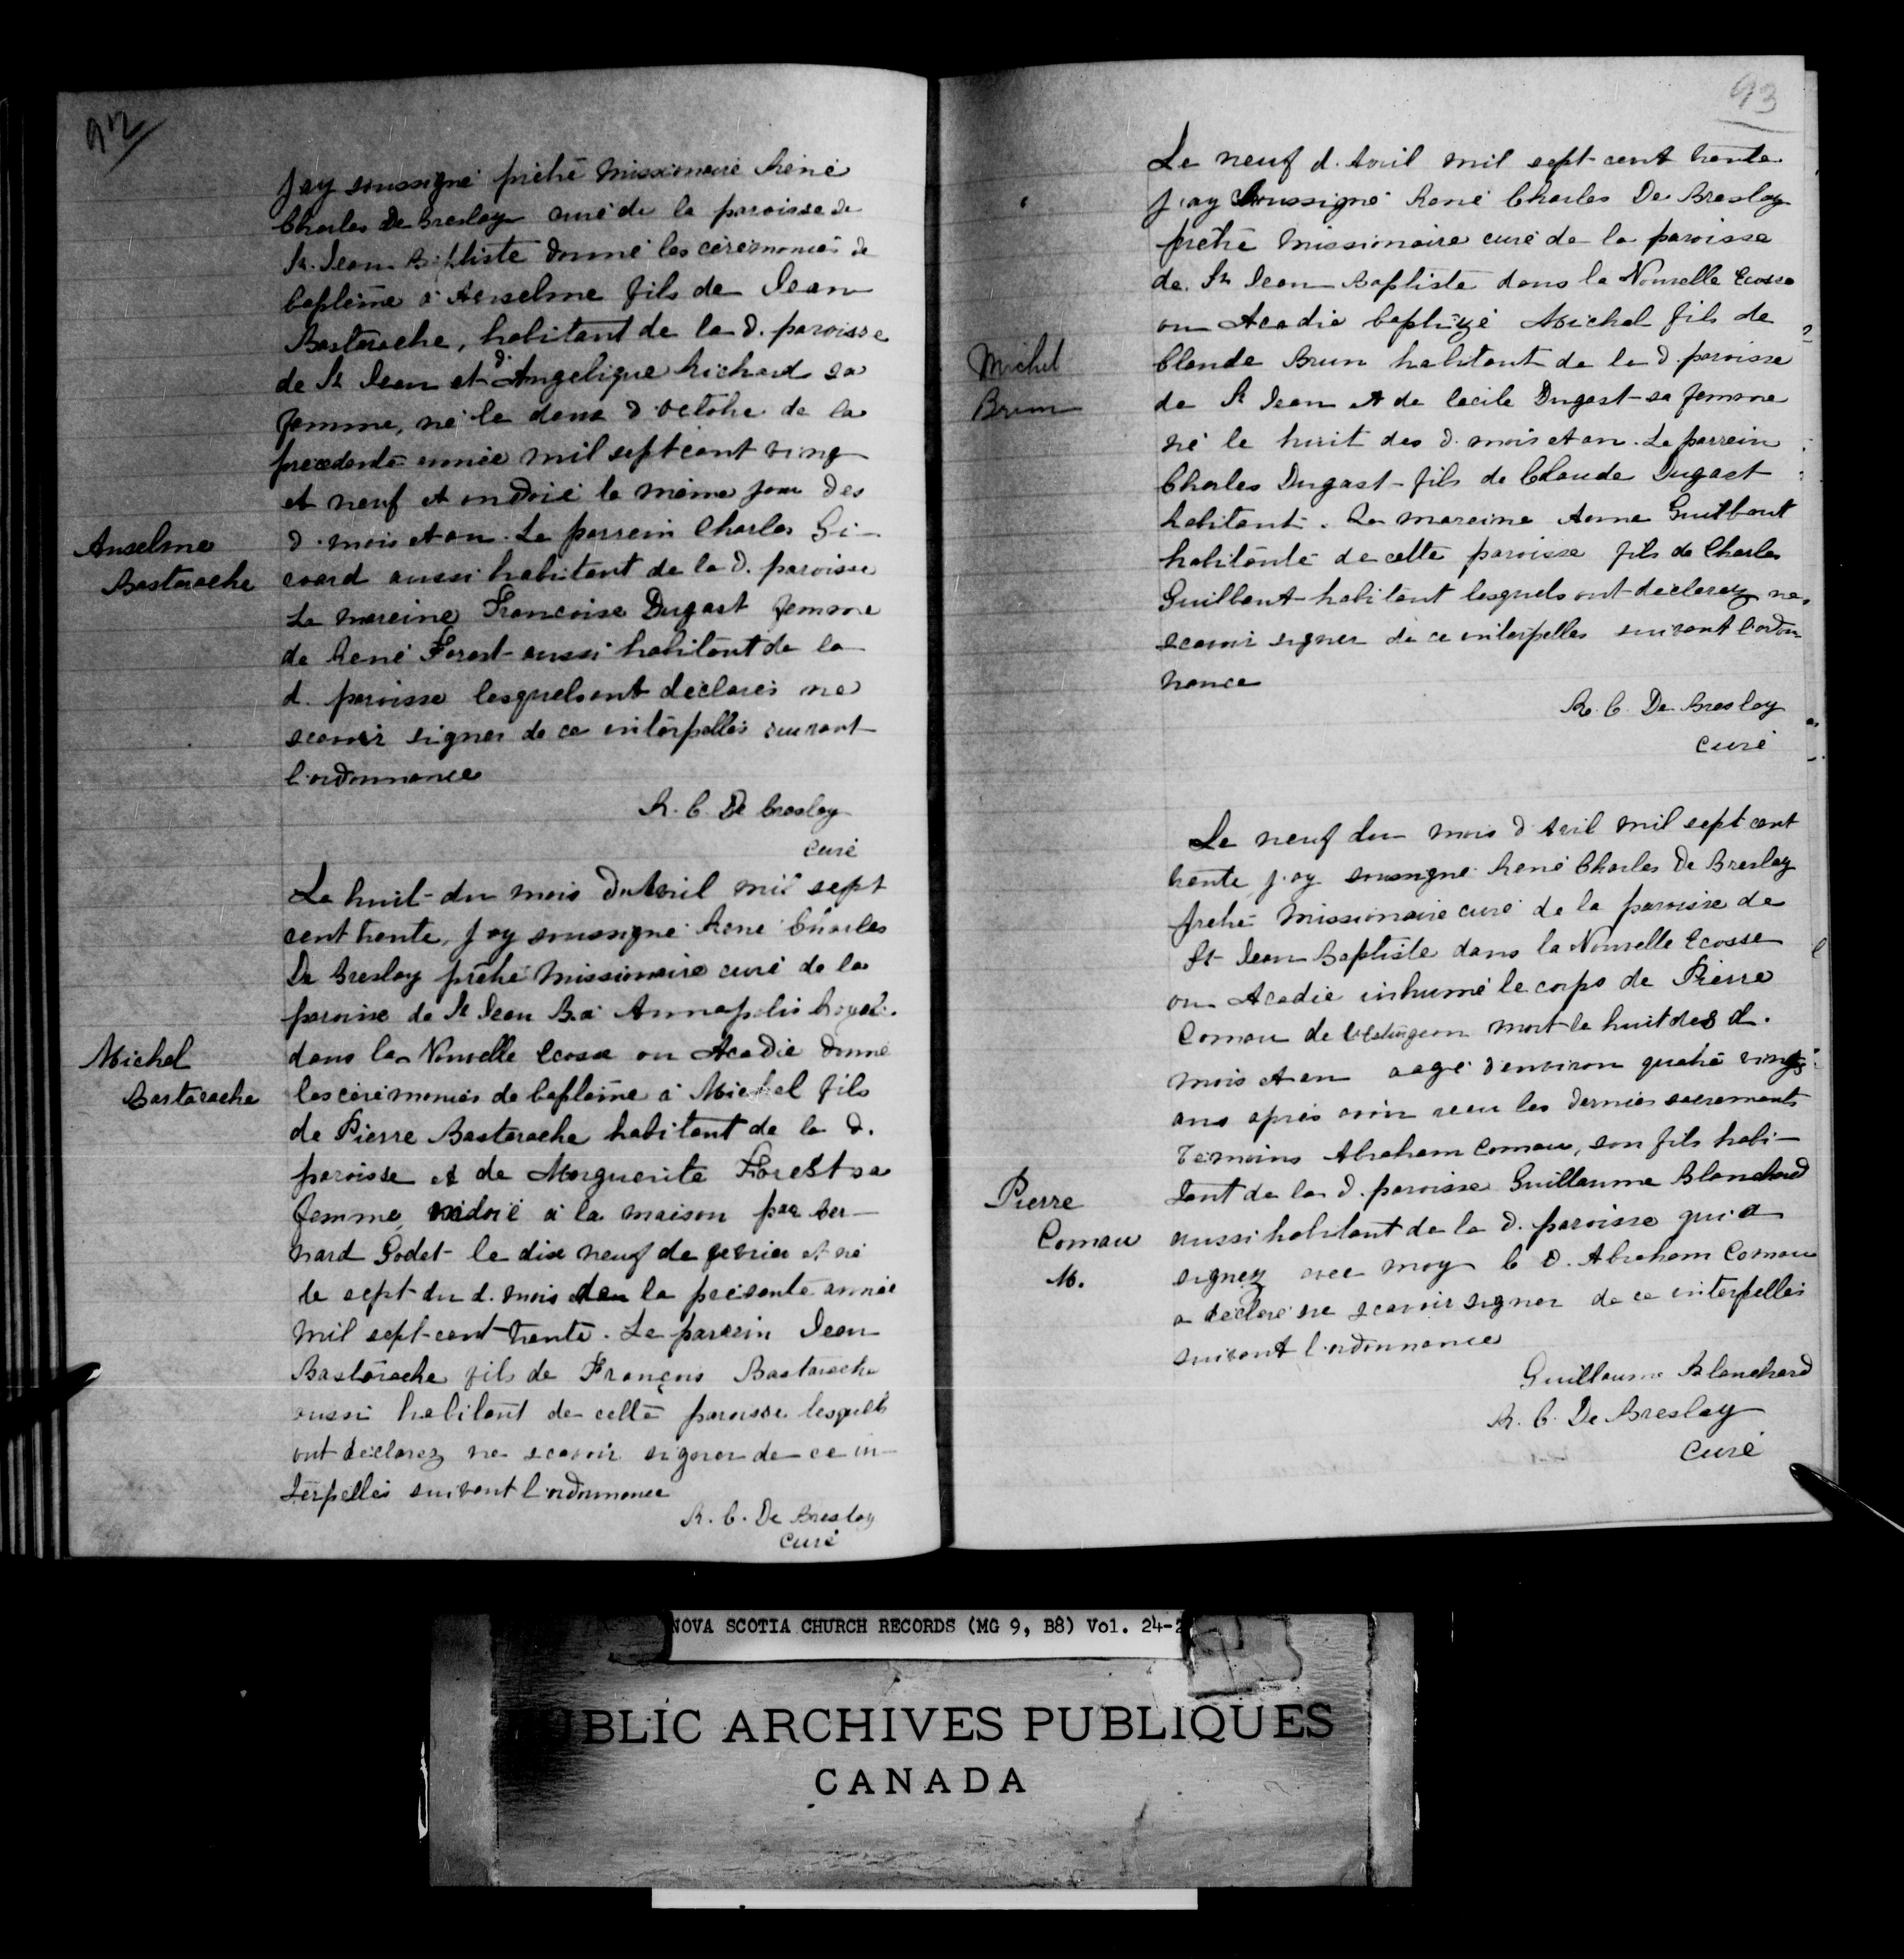 92
Jay soussigné prêtre Missionaire René
Charles De Breslay curé de la paroisse de
St. Jean Baptiste donné les cérémonies de
baplême à Anselme fils de Jean
Bastarache, habitant de la d. paroisse
de St Jean et d'Angelique Richard sa
femme, né le deux d'octobre de la
precedente année mil sept cent ving
et neuf et ondoié le même jour des
d. mois et an. Le parrein Charles Gi-
Anselme
Bastarache
coard aussi habitant de la d. paroisse
La mareine Francoise Dugast femme
de René Forest aussi habitant de la
d. paroisse lesquels ont déclarés ne
scavoir signer de ce interpellés suivant
l'ordonnance
R. C. De Breslay
Curé
Le huit du mois d'avril mil sept
cent trente, Jay soussigné René Charles
De Breslay prêtre Missionnaire curé de la
paroisse de St Jean B. à Annapolis Royal.
Michel
Bastarache
dans la Nouvelle Ecosse ou Acadie donné
les cérémonies de baplême à Michel fils
de Pierre Bastarache habitant de la d.
paroisse et de Marguerite Forest sa
femme, ondoié à la maison par Ber-
nard Godet le dix neuf de fevrier et né
le sept du d. mois de la présente année
mil sept-cent trente. Le parrein Jean
Bastarache fils de François Bastarache
aussi habitant de cette paroisse lesquels
ont déclarez ne scavoir signer de ce in-
terpellés suivant l'ordonnance
R. C. De Breslay
Curé
93
Le neuf d'Avril mil sept-cent trente
J'ay Soussigné René Charles De Breslay
prêtre Missionaire curé de la paroisse
de St Jean Baptiste dans la Nouvelle Ecosse
ou Acadie baptizé Michel fils de
Michel
Brun
Claude Brun habitant de la d. paroisse
de St Jean et de Cecile Dugast sa femme
né le huit des d. mois et an. Le parrein
Charles Dugast fils de Claude Dugast
habitant. La mareine Anne Guilbaut
habitante de cette paroisse fils de Charles
Guilbaut habitant lesquels ont declarez ne
scavoir signer de ce interpellés suivant l'ordon
nance
R. C. De Breslay
Curé
Le neuf du mois d'Avril mil sept cent
trente j'ay soussigné René Charles De Breslay
prêtre Missionaire curé de la paroisse de
St Jean Baptiste dans la Nouvelle Ecosse
ou Acadie inhumé le corps de Pierre
Comau de mort le huit des d.
mois et an aagé d'environ quatre vingts
ans après avoir receu les derniers sacrements
Témoins Abraham Comau, son fils habi-
Pierre
Comau
M.
tant de la d. paroisse Guillaume Blanchard
aussi habitant de la d. paroisse qui a
signez avec moy le d. Abraham Comau
a déclaré ne scavoir signer de ce interpellés
suivant l'ordonnance
Guillaume Blanchard
R. C. De Breslay
Curé
NOVA SCOTIA CHURCH RECORDS (MG 9, B8) Vol. 24-2
PUBLIC ARCHIVES PUBLIQUES
CANADA